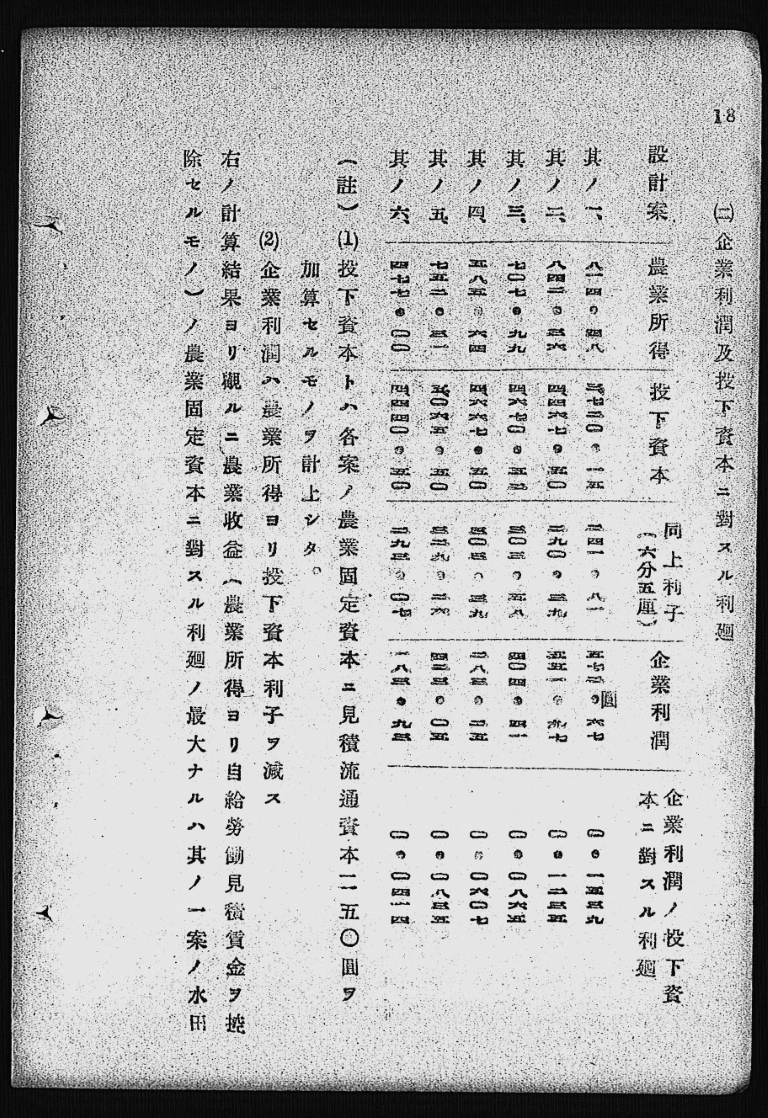 18
㈡企業利潤及投下資本ニ對スル利廻
設計案 農業所得 投下資本 同上利子(六分五厘) 企業利潤 企業利潤ノ投下資本ニ對スル利廻
其ノ一、 八一四・四八 三七二〇・一五 二四一・八一 五七二・六七圓 〇・一五三九
其ノ二、 八四二・三六 四四六七・五〇 二九〇・三九 五五一・九七 〇・一二三五
其ノ三、 七〇七・九九 四六七〇・五三 三〇三・五八 四〇四・四一 〇・〇八六五
其ノ四、 五八五・六四 四六六七・五〇 三〇三・三九 二八三・二五 〇・〇六〇七
其ノ五、 七五二・三一 五〇六五・五〇 三二九・二六 四二三・〇五 〇・〇八三五
其ノ六、 四七七・〇〇 四四四〇・五〇 二九三・〇七 一八三・九三 〇・〇四一四
(註)(1)投下資本トハ各案ノ農業固定資本ニ見積流通資本二五〇圓ヲ
加算セルモノヲ計上シタ。
(2)企業利潤ハ農業所得ヨリ投下資本利子ヲ減ス
右ノ計算結果ヨリ觀ルニ農業收益(農業所得ヨリ自給勞働見積賃金ヲ控
除セルモノ)ノ農業固定資本ニ對スル利廻ノ最大ナルハ其ノ一案ノ水田